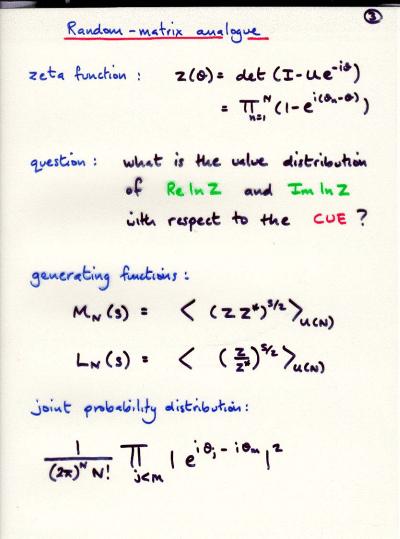 3
Random-matrix analogue
zeta function : Z(θ) = det (I - U e^{-iθ})
= ∏_{n=1}^{N} (1 - e^{i(θ_n - θ)})
question : what is the value distribution
of Re ln Z and Im ln Z
with respect to the CUE ?
generating functions :
M_N(s) = < (Z Z*)^{s/2} >_{U(N)}
L_N(s) = < (Z/Z*)^{s/2} >_{U(N)}
joint probability distribution :
1/((2π)^N N!) ∏_{j<m} | e^{iθ_j} - e^{iθ_m} |^2